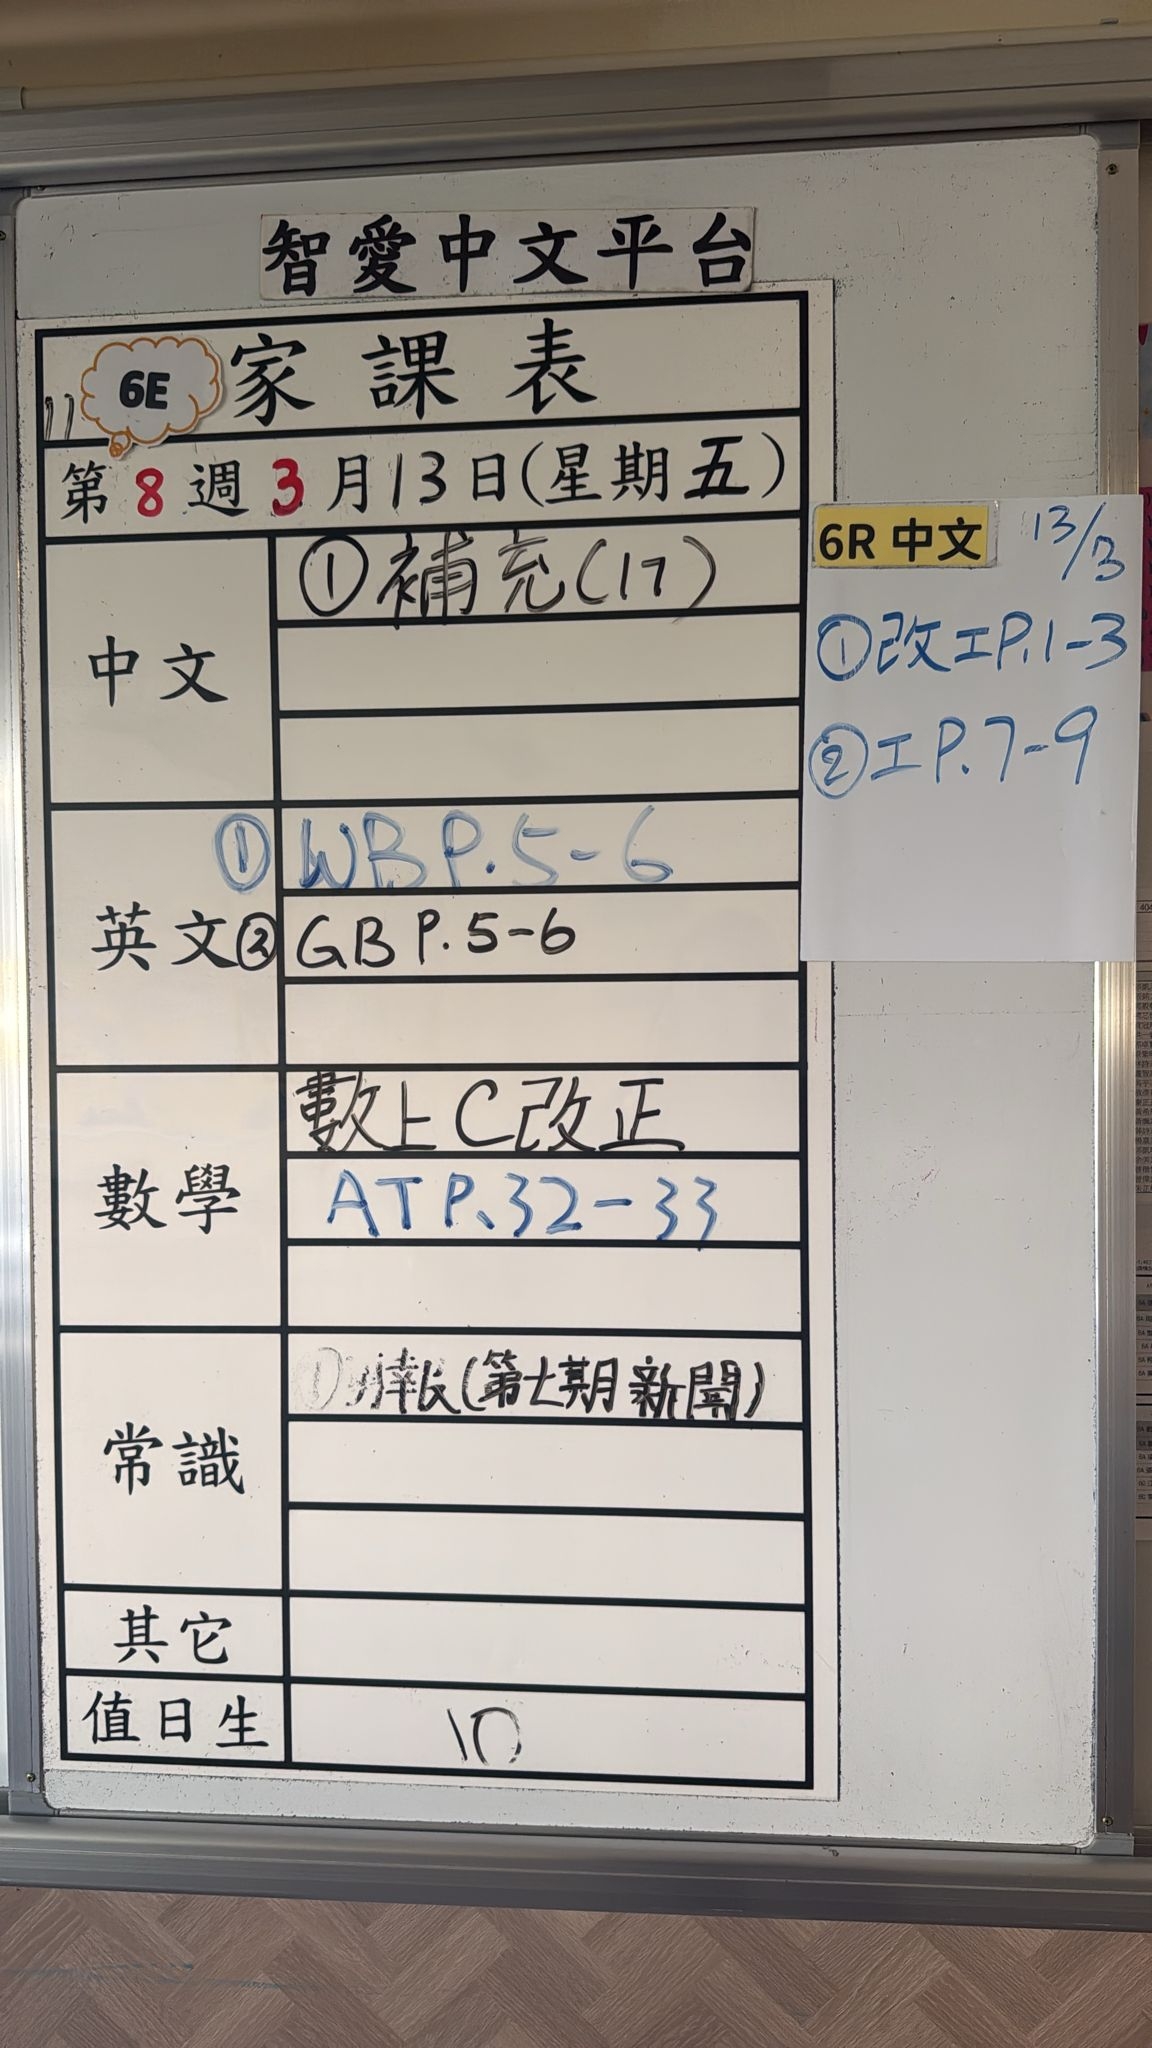 智愛中文平台
6E
家課表
第8週3月13日(星期五)
中文
①補充(17)
英文
①WB P.5-6
②GB P.5-6
數學
數上C改正
AT P.32-33
常識
①剪報(第七期新聞)
其它
值日生
10
6R 中文
13/3
①改工P.1-3
②工P.7-9